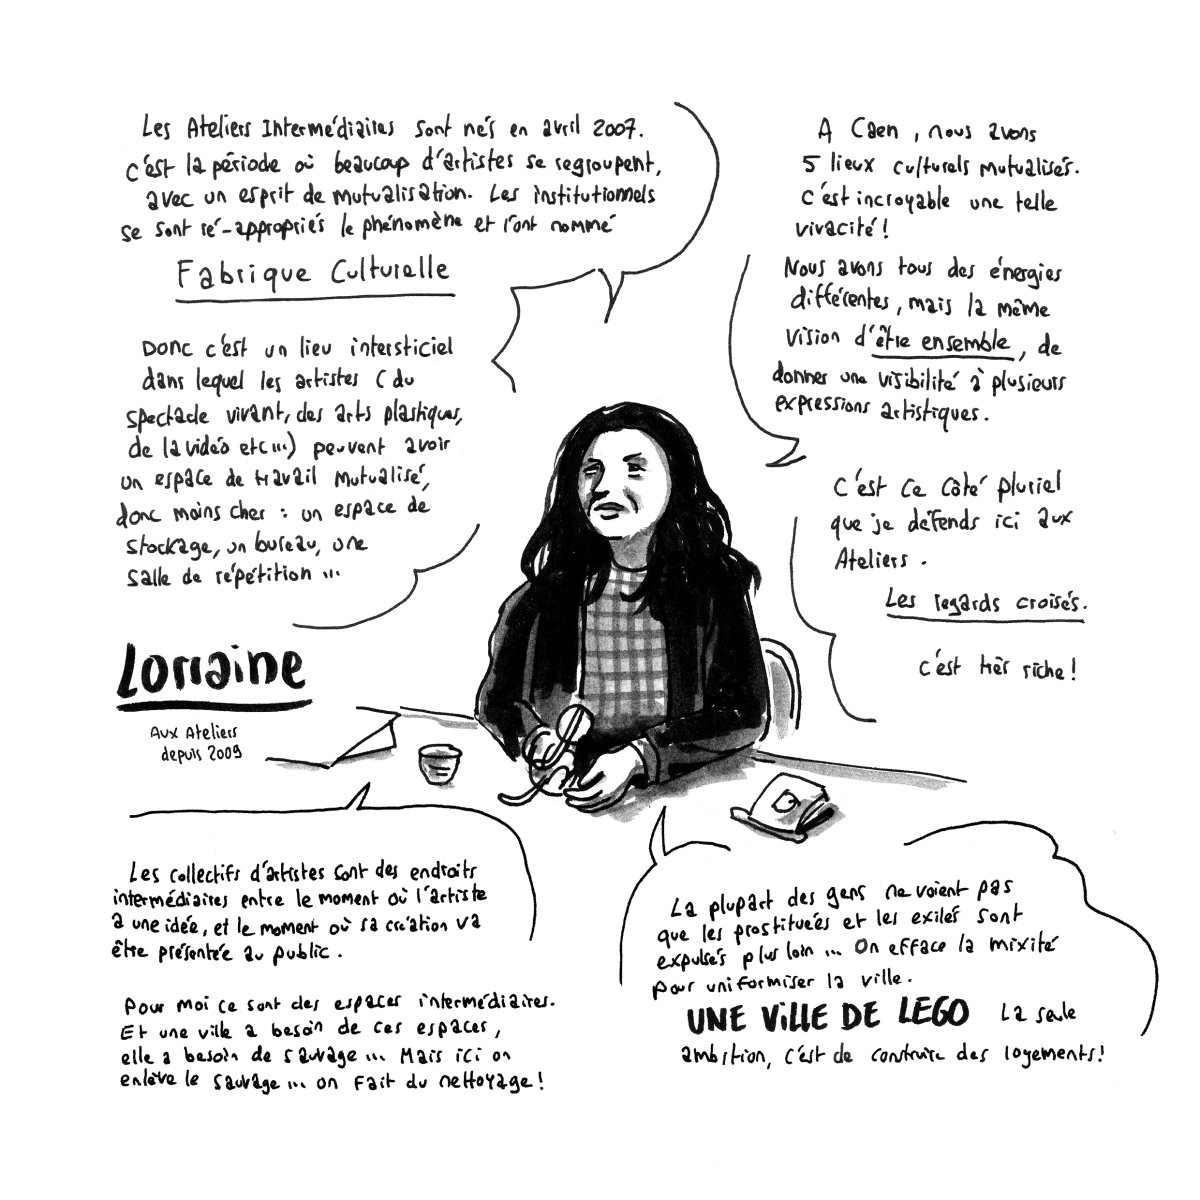 Les Ateliers Intermédiaires sont nés en avril 2007.
C'est la période où beaucoup d'artistes se regroupent,
avec un esprit de mutualisation. Les institutionnels
se sont ré-appropriés le phénomène et l'ont nommé
Fabrique Culturelle
Donc c'est un lieu intersticiel
dans lequel les artistes (du
spectacle vivant, des arts plastiques,
de la vidéo etc...) peuvent avoir
un espace de travail mutualisé,
donc moins cher : un espace de
stockage, un bureau, une
salle de répétition ...
A Caen, nous avons
5 lieux culturels mutualisés.
C'est incroyable une telle
vivacité !
Nous avons tous des énergies
différentes, mais la même
vision d'être ensemble, de
donner une visibilité à plusieurs
expressions artistiques.
C'est ce côté pluriel
que je défends ici aux
Ateliers.
Les regards croisés.
C'est très riche !
Lorraine
Aux Ateliers
depuis 2009
Les collectifs d'artistes sont des endroits
intermédiaires entre le moment où l'artiste
a une idée, et le moment où sa création va
être présentée au public.
Pour moi ce sont des espaces intermédiaires.
Et une ville a besoin de ces espaces,
elle a besoin de sauvage ... Mais ici on
enlève le sauvage ... on fait du nettoyage !
La plupart des gens ne voient pas
que les prostituées et les exilés sont
expulsés plus loin ... On efface la mixité
pour uniformiser la ville.
UNE VILLE DE LEGO La seule
ambition, c'est de construire des logements !